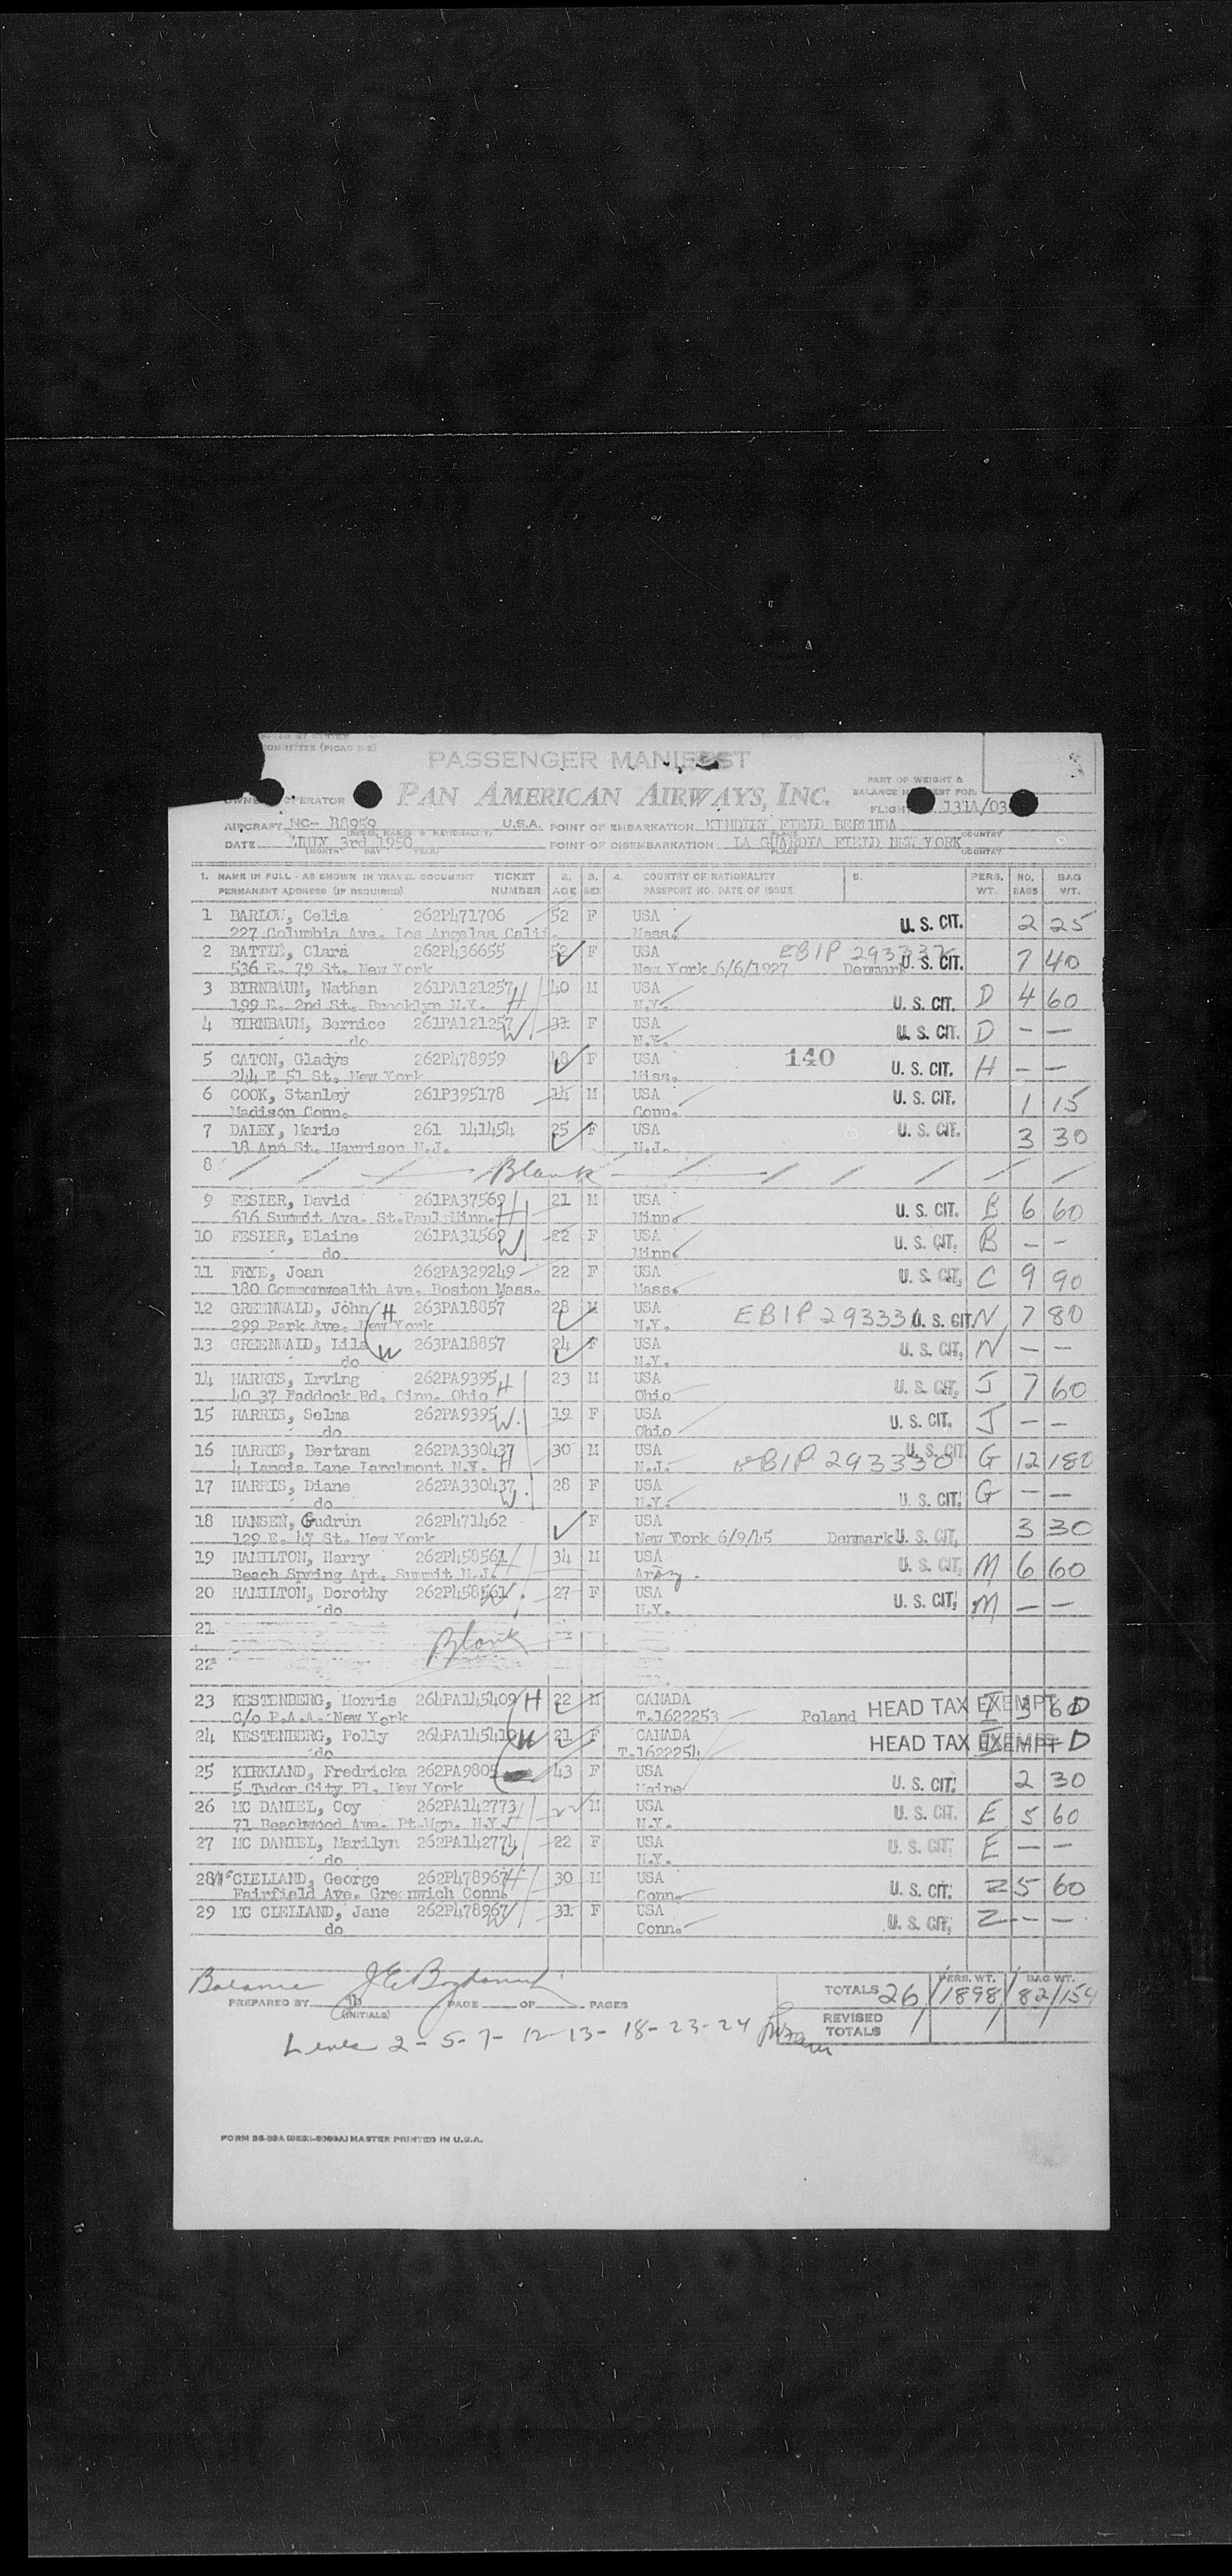 COMMITTEE (PICAO
PASSENGER MANIFEST
PAN AMERICAN AIRWAYS, INC.
OPERATOR
PART OF WEIGHT &
BALANCE MANIFEST FOR:
FLIGHT 131A/03
AIRCRAFT NC- 88959 U.S.A. POINT OF EMBARKATION KINDLEY FIELD BERMUDA
DATE JULY 3rd 1950 POINT OF DISEMBARKATION LA GUARDIA FIELD NEW YORK
(MONTH DAY YEAR) PLACE COUNTRY
1. NAME IN FULL - AS SHOWN IN TRAVEL DOCUMENT TICKET 2. 3. 4. COUNTRY OF NATIONALITY 5. PERS. NO. BAG
PERMANENT ADDRESS (IF REQUIRED) NUMBER AGE SEX PASSPORT NO. DATE OF ISSUE WT. BAGS WT.
1 BARLOW, Celia 262P471706 52 F USA U. S. CIT. 2 25
227 Columbia Ave. Los Angalas Calif. Mass.
2 BATTLE, Clara 262P436655 52 F USA EBIP U. S. CIT. 7 40
536 E. 79 St. New York New York 6/6/1927 Denmark
3 BIRNBAUM, Nathan 261PA121257 H 40 M USA U. S. CIT. D 4 60
199 E. 2nd St. Brooklyn N.Y. N.Y.
4 BIRNBAUM, Bernice 261PA121257 W 31 F USA U. S. CIT. D — —
do N.Y.
5 CATON, Gladys 262P478959 F USA 140 U. S. CIT. H — —
244 E 51 St. New York Miss.
6 COOK, Stanley 261P395178 14 M USA U. S. CIT. 1 15
Madison Conn. Conn.
7 DALEY, Marie 261 141454 25 F USA U. S. CIT. 3 30
18 Ann St. Harrison N.J. N.J.
8 Blank
9 FESIER, David 261PA37569 H 21 M USA U. S. CIT. B 6 60
616 Summit Ave. St.Paul Minn. Minn.
10 FESIER, Elaine 261PA31569 W 22 F USA U. S. CIT. B — —
do Minn.
11 FRYE, Joan 262PA329249 22 F USA U. S. CIT. C 9 90
180 Commonwealth Ave. Boston Mass. Mass.
12 GREENWALD, John H 263PA18857 28 M USA EBIP 293331 U. S. CIT. N 7 80
299 Park Ave. New York N.Y.
13 GREENWALD, Lila W 263PA18857 24 F USA U. S. CIT. N — —
do N.Y.
14 HARRIS, Irving 262PA9395 H 23 M USA U. S. CIT. J 7 60
40 37 Paddock Rd. Cinn. Ohio Ohio
15 HARRIS, Selma 262PA9395 W. 19 F USA U. S. CIT. J — —
do Ohio
16 HARRIS, Bertram 262PA330437 H 30 M USA EBIP 293330 U. S. CIT G 12 180
4 Lancia Lane Larchmont N.Y. N.J.
17 HARRIS, Diane 262PA330437 W. 28 F USA U. S. CIT. G — —
do N.Y.
18 HANSEN, Gudrun 262P471462 F USA 3 30
129 E. 47 St. New York New York 6/9/45 Denmark U. S. CIT.
19 HAMILTON, Harry 262P458561 H 34 M USA U. S. CIT. M 6 60
Beach Spring Apt. Summit N.J.
20 HAMILTON, Dorothy 262P458561 W. 27 F USA U. S. CIT. M — —
do N.Y.
21 Blank
22
23 KESTENBERG, Morris 264PA145409 H 22 M CANADA HEAD TAX EXEMPT 3 60
C/o P.A.A. New York T.1622253 Poland
24 KESTENBERG, Polly 264PA145410 W 21 F CANADA HEAD TAX EXEMPT
do T.1622254
25 KIRKLAND, Fredricka 262PA9805 43 F USA U. S. CIT. 2 30
5 Tudor City Pl. New York Maine
26 MC DANIEL, Coy 262PA142773 H 22 M USA U. S. CIT. E 5 60
71 Beachwood Ave. Pt.Wgn. N.Y. N.Y.
27 MC DANIEL, Marilyn 262PA142774 W 22 F USA U. S. CIT. E — —
do N.Y.
28 Mc CLELLAND, George 262P478967 H 30 M USA U. S. CIT. Z 5 60
Fairfield Ave. Greenwich Conn. Conn.
29 MC CLELLAND, Jane 262P478967 W 31 F USA U. S. CIT. Z — —
do Conn.
Balance
PREPARED BY (INITIALS) PAGE OF PAGES
TOTALS 26 PERS. WT. 1898 BAG WT. 82/154
REVISED TOTALS
Lines 2-5-7-12-13-18-23-24
FORM 36-89A MASTER PRINTED IN U.S.A.